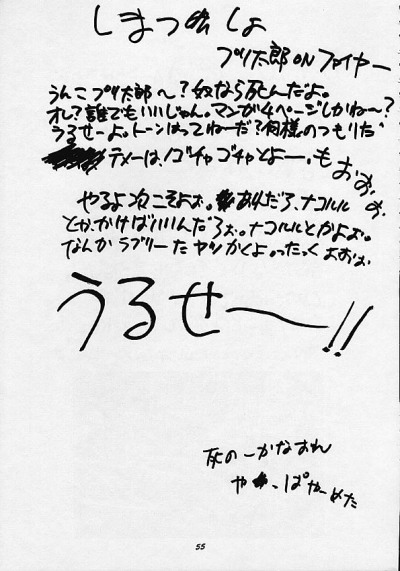 しまつ書しょ
プリ太郎 ON ファイヤー
うんこプリ太郎〜?奴なら死んだよ。
オレ?誰でもいいじゃん。マンガ4ページしかね〜?
うるせーよ。トーンはってねーだ?何様のつもりだ
テメーは、ゴチャゴチャとよー。もぉぉぉぉ
やるよ次こそよぉ。あれだろ、ナコルル
とか、かけばいいんだろぉ。ナコルルとかよぉ。
なんかラブリーたヤツかくよ。ったくよぉぉぉ
うるせ〜!!
死のーかなおれ
やっぱやーめた
55